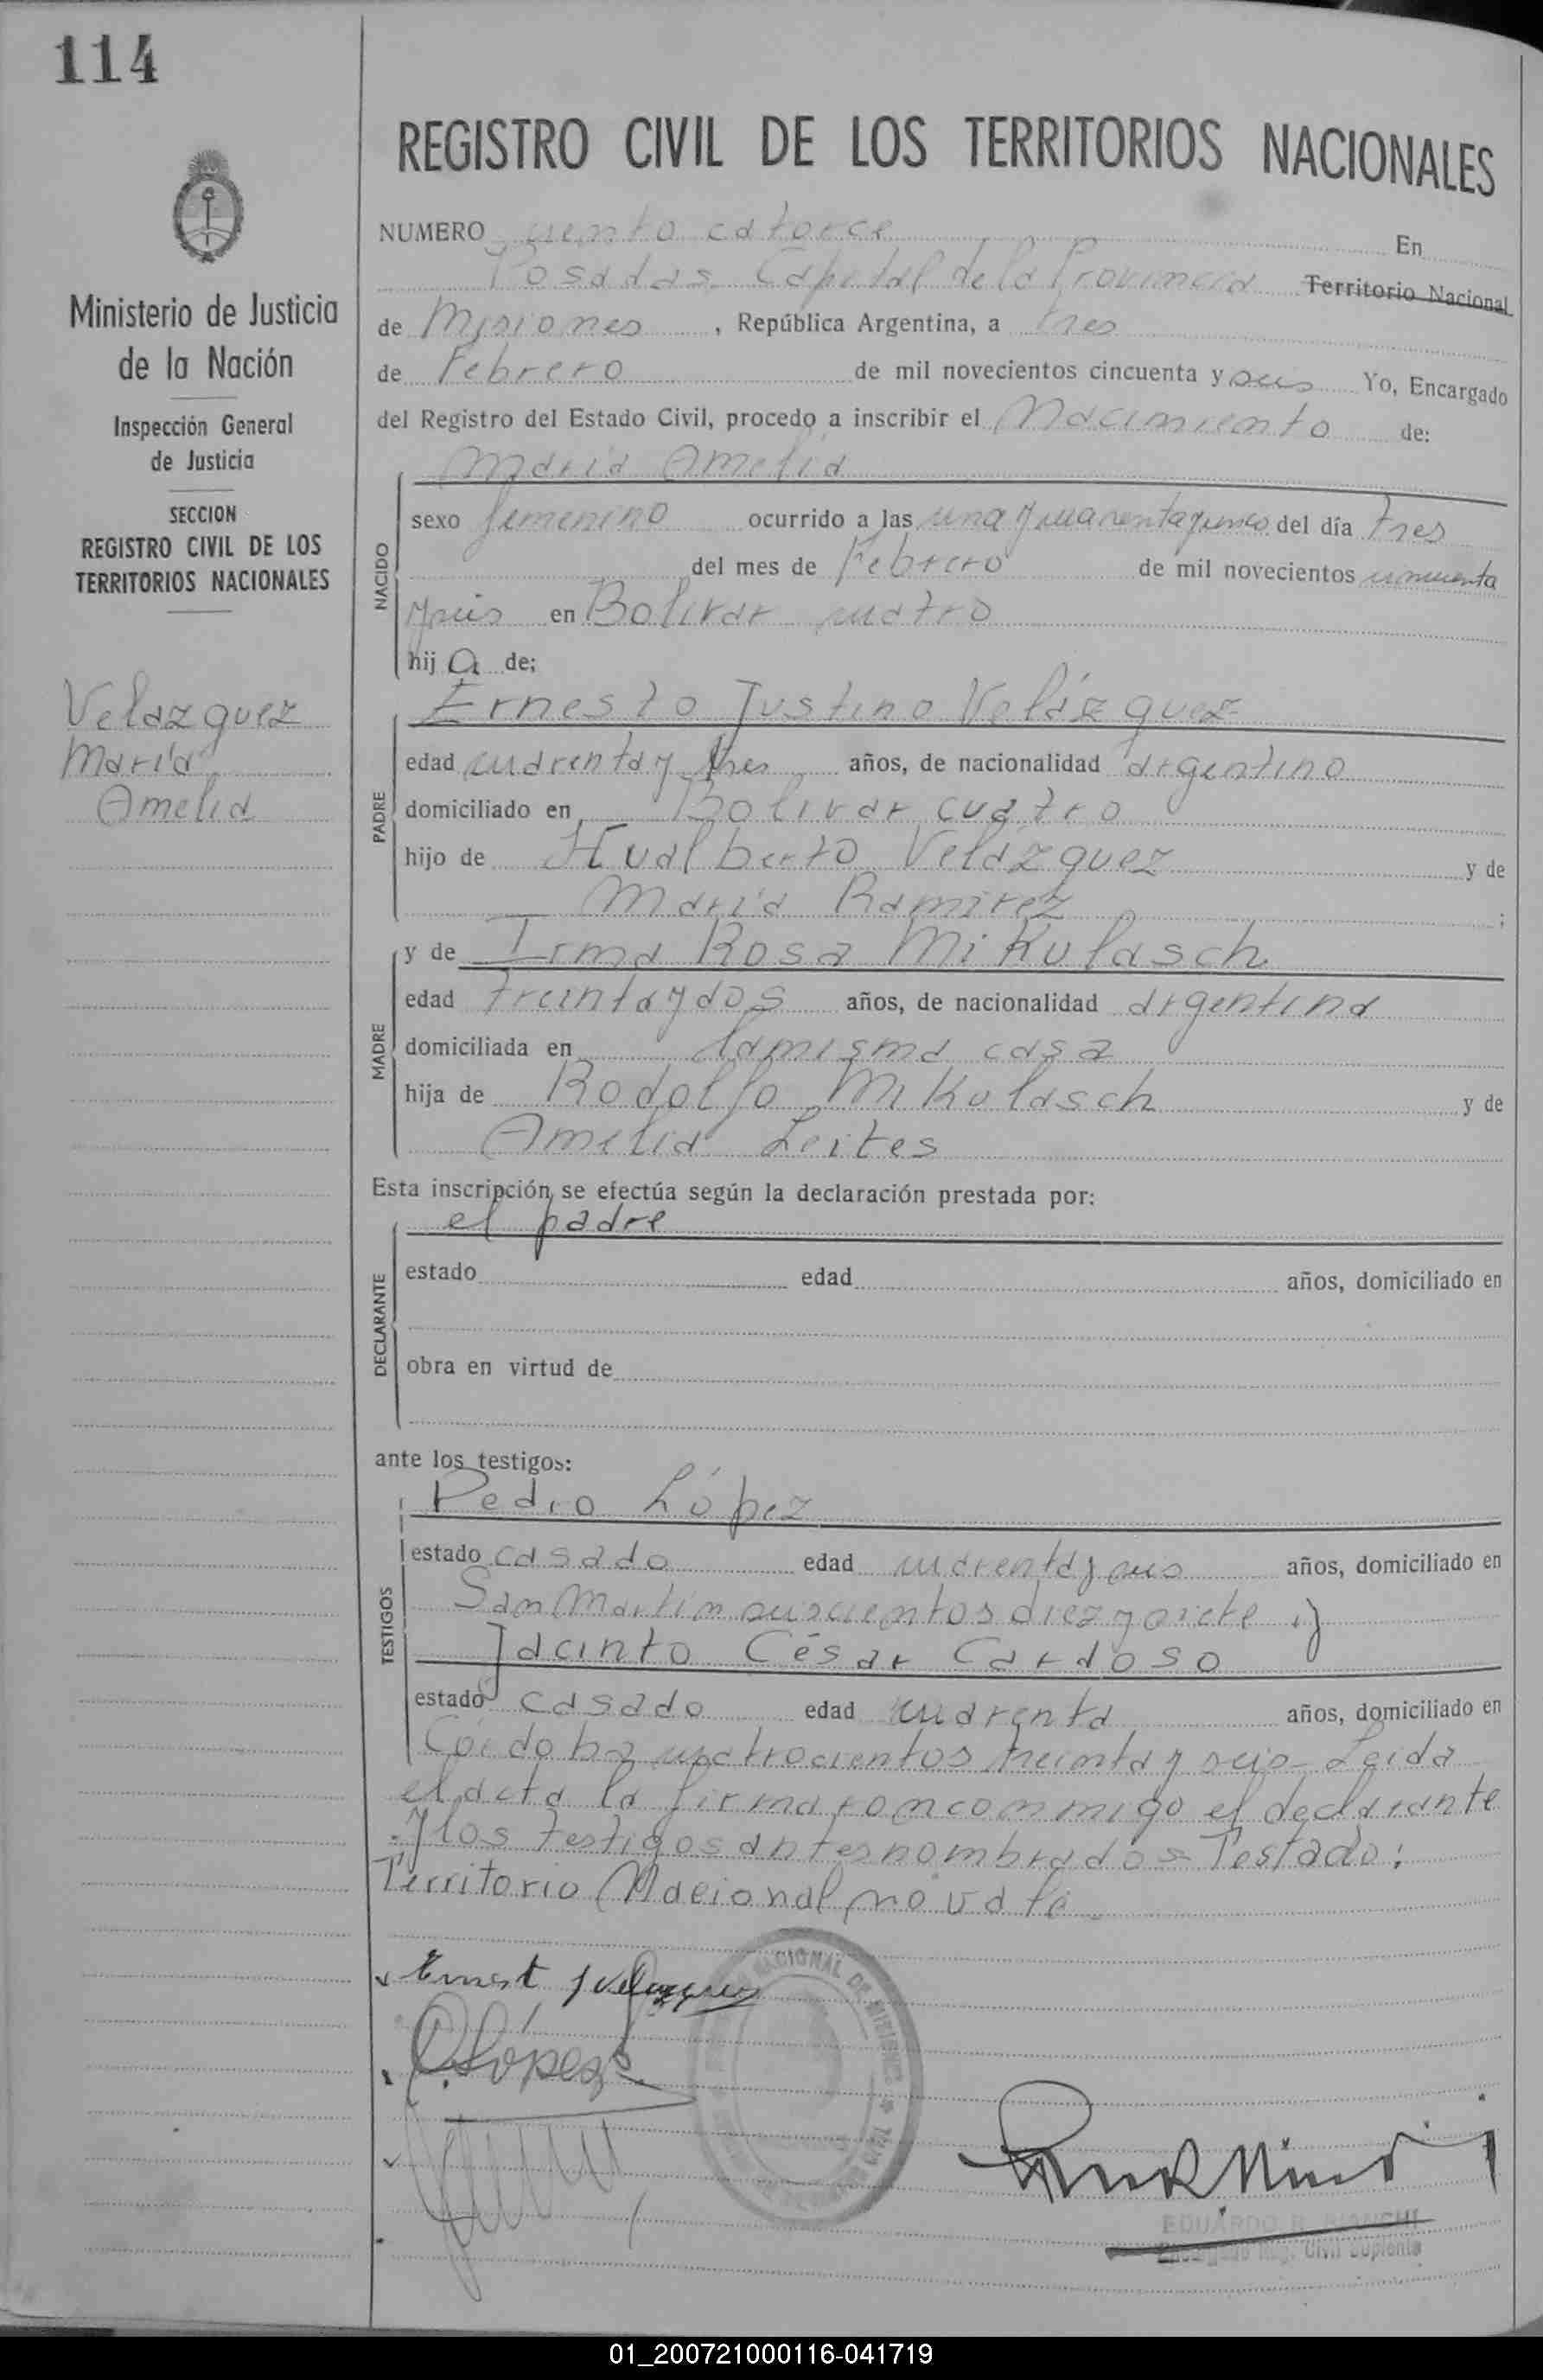 114
Ministerio de Justicia
de la Nación
Inspección General
de Justicia
SECCION
REGISTRO CIVIL DE LOS
TERRITORIOS NACIONALES
Velazquez
María
Amelia
REGISTRO CIVIL DE LOS TERRITORIOS NACIONALES
NUMERO ciento catorce En
Posadas Capital de la Provincia Territorio Nacional
de Misiones , República Argentina, a tres
de Febrero de mil novecientos cincuenta y seis Yo, Encargado
del Registro del Estado Civil, procedo a inscribir el Nacimiento de:
María Amelia
NACIDO
sexo femenino ocurrido a las una y cuarenta y cinco del día tres
del mes de Febrero de mil novecientos cincuenta
y seis en Bolivar cuatro
hij a de;
Ernesto Justino Velázquez
PADRE
edad cuarenta y tres años, de nacionalidad argentino
domiciliado en Bolivar cuatro
hijo de Hualberto Velázquez y de
María Ramirez ;
y de Irma Rosa Mikulasch
MADRE
edad treinta y dos años, de nacionalidad argentina
domiciliada en la misma casa
hija de Rodolfo Mikulasch y de
Amelia Leites
Esta inscripción se efectúa según la declaración prestada por:
el padre
DECLARANTE
estado edad años, domiciliado en
obra en virtud de
ante los testigos:
Pedro López
TESTIGOS
estado casado edad cuarenta y seis años, domiciliado en
San Martín seiscientos diez y siete y
Jacinto César Cardoso
estado casado edad cuarenta años, domiciliado en
Córdoba cuatrocientos treinta y seis - Leida
el acta la firmaron conmigo el declarante
y los testigos antes nombrados = Testado:
Territorio Nacional, no vale
Ernest J Velazquez
P. López
EDUARDO R. BIANCHI
Encargado Reg. Civil Suplente
01_200721000116-041719